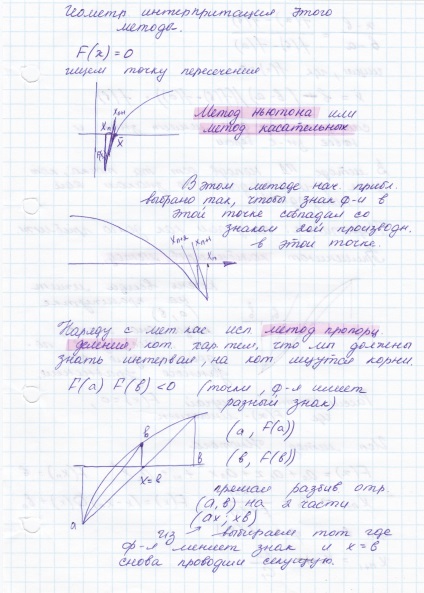 Геометр интерпритация этого
метода.
F(x) = 0
ищем точку пересечения
xₙ xₙ₊₁
x̄
Метод ньютона или
метод касательных
В этом методе нач. прибл.
выбрано так, чтобы знак ф-и в
этой точке совпадал со
знаком 2ой производн.
в этой точке.
xₙ₊₂ xₙ₊₁ xₙ
Наряду с мет кас. исп метод пропорц
делений, кот хар тем, что мы должны
знать интервал, на кот ищутся корни.
F(a) F(в) < 0 (точки, ф-я имеет
разный знак)
(a, F(a))
(в, F(в))
в
x = в
В
a
прямая разбив отр.
(a, в) на 2 части
(ax; xв)
из выбираем тот где
ф-я меняет знак и x = в
снова проводим секущую.